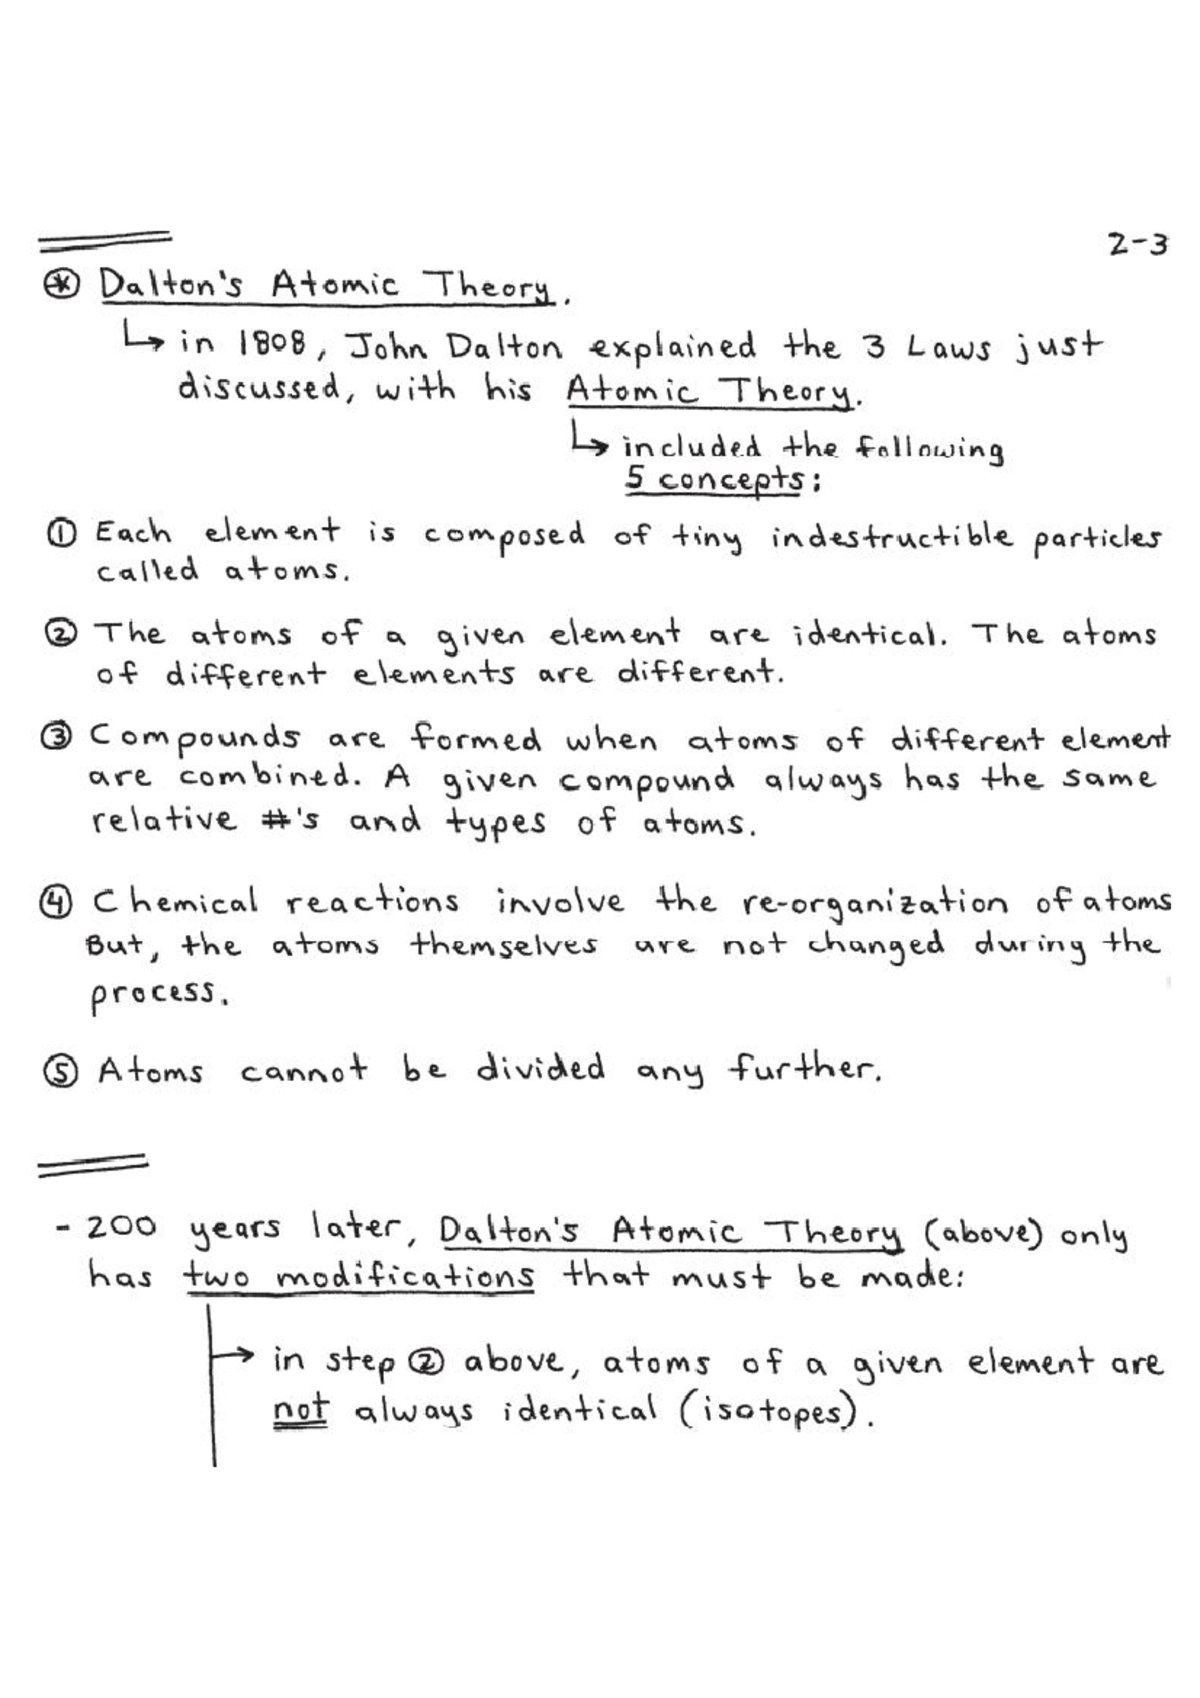 2-3
⊛ Dalton's Atomic Theory.
↳ in 1808, John Dalton explained the 3 Laws just
discussed, with his Atomic Theory.
↳ included the following
5 concepts:
① Each element is composed of tiny indestructible particles
called atoms.
② The atoms of a given element are identical. The atoms
of different elements are different.
③ Compounds are formed when atoms of different element
are combined. A given compound always has the same
relative #'s and types of atoms.
④ Chemical reactions involve the re-organization of atoms
But, the atoms themselves are not changed during the
process.
⑤ Atoms cannot be divided any further.
- 200 years later, Dalton's Atomic Theory (above) only
has two modifications that must be made:
→ in step ② above, atoms of a given element are
not always identical (isotopes).